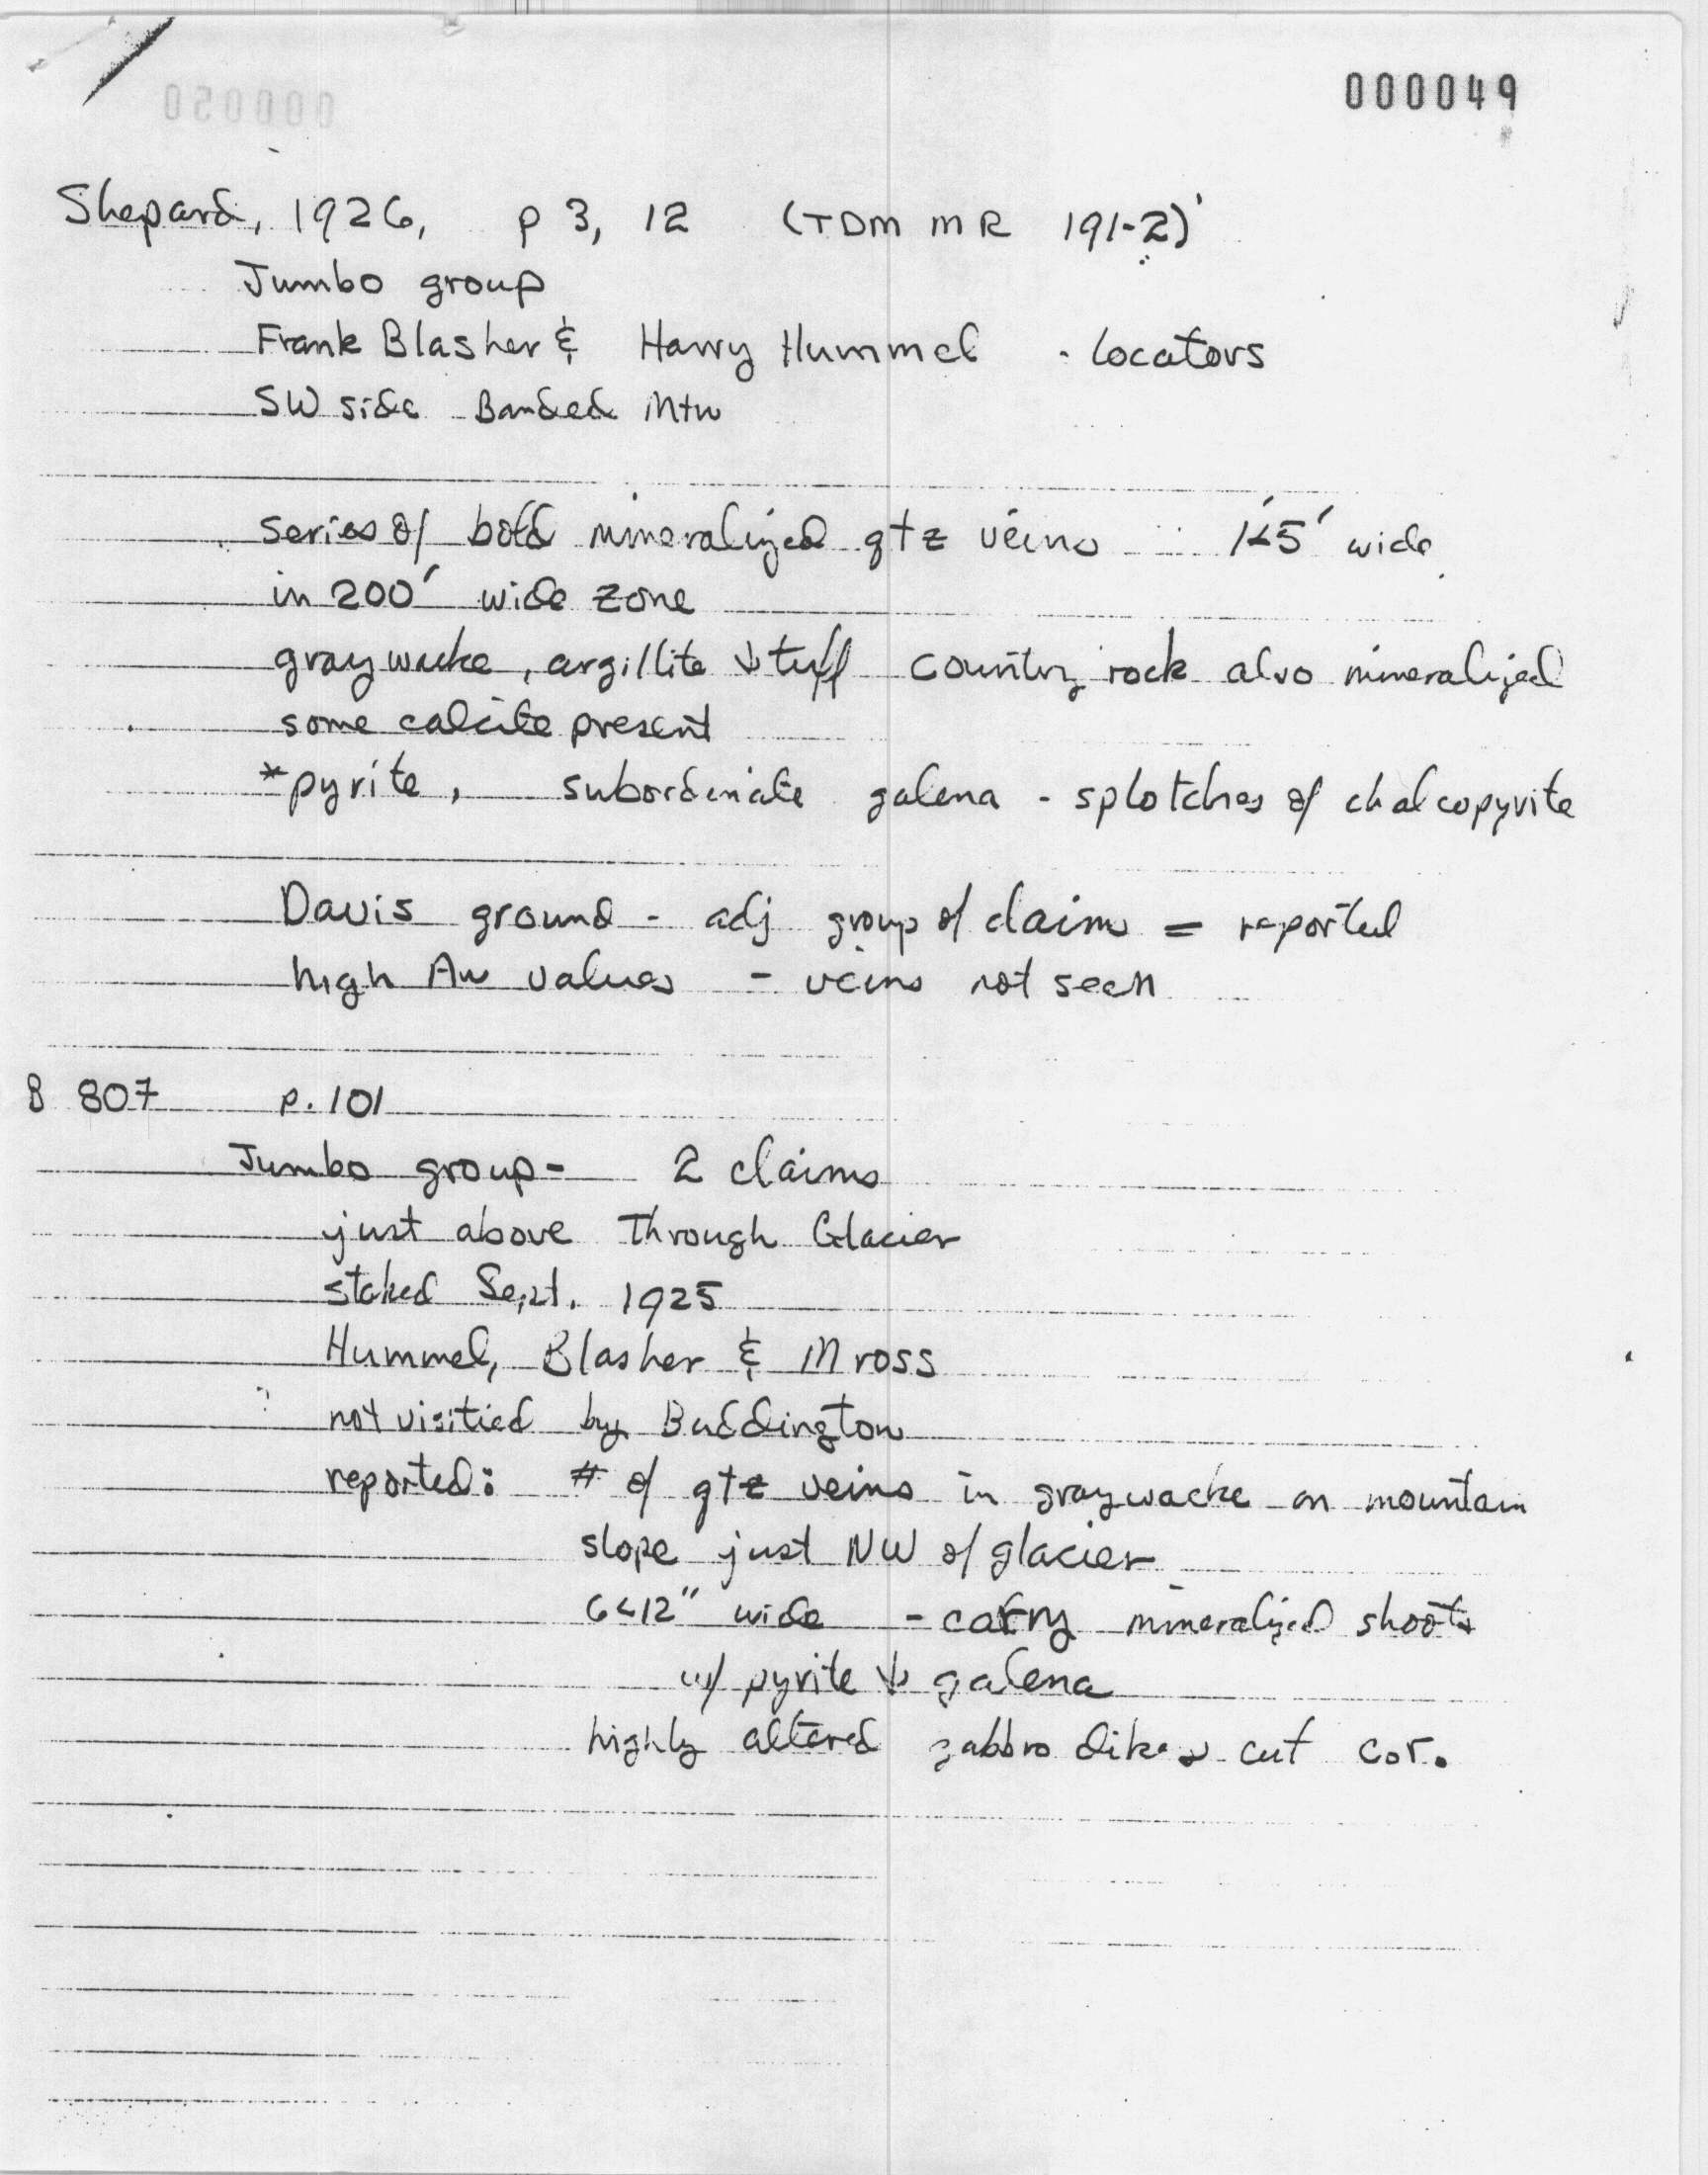 000049
000050
Shepard, 1926, p 3, 12 (TDM MR 191-2)
Jumbo group
Frank Blasher & Harry Hummel - locators
SW side Banded Mtn
series of bold mineralized qtz veins 1<5' wide
in 200' wide zone
graywacke, argillite & tuff country rock also mineralized
some calcite present
*pyrite, subordinate galena - splotches of chalcopyrite
Davis ground - adj group of claims = reported
high Au values - veins not seen
B 807 p. 101
Jumbo group - 2 claims
just above Through Glacier
staked Sept. 1925
Hummel, Blasher & Mross
not visitied by Buddington
reported: # of qtz veins in graywacke on mountain
slope just NW of glacier
6<12" wide - carry mineralized shoots
w/ pyrite & galena
highly altered gabbro dikes cut cor.